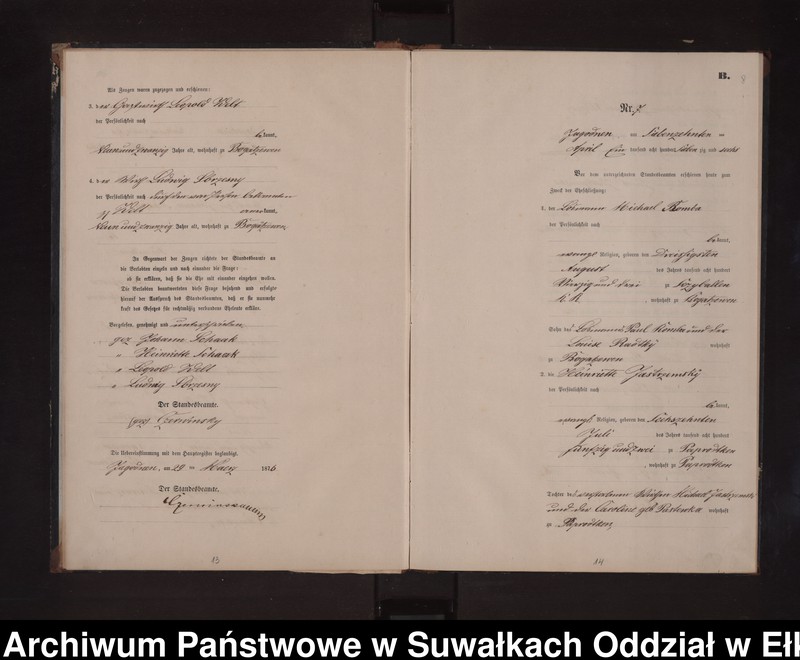 Als Zeugen waren zugezogen und erschienen:
3. der Gastwirth Leopold Welt
der Persönlichkeit nach
kannt,
Neunundzwanzig Jahre alt, wohnhaft zu Bogatzewen
4. der Wirth Ludwig
der Persönlichkeit nach durch den
Welt kannt,
Jahre alt, wohnhaft zu Bogatzewen
In Gegenwart der Zeugen richtete der Standesbeamte an
die Verlobten einzeln und nach einander die Frage:
ob sie erklären, daß sie die Ehe mit einander eingehen wollen.
Die Verlobten beantworteten diese Frage bejahend und erfolgte
hierauf der Ausspruch des Standesbeamten, daß er sie nunmehr
kraft des Gesetzes für rechtmäßig verbundene Eheleute erkläre.
Vorgelesen, genehmigt und unterschrieben
gez. Johann
" Heinriette
" Leopold Welt
" Ludwig
Der Standesbeamte.
gez. Czerwinsky
Die Uebereinstimmung mit dem Hauptregister beglaubigt.
Jagodnen, am 29 ten Maerz 1876
Der Standesbeamte.
13
B.
8
Nr. 7
Jagodnen am Siebenzehnten ten
April Ein tausend acht hundert sieben zig und sechs
Vor dem unterzeichneten Standesbeamten erschienen heute zum
Zweck der Eheschließung:
1. der Losmann Michael Romba
der Persönlichkeit nach
kannt,
evangl Religion, geboren den Dreissigsten
August des Jahres tausend acht hundert
Vierzig und drei zu
, wohnhaft zu Bogatzewen
Sohn des Losmanns Paul Romba und der
Louise Radtky wohnhaft
zu Bogatzewen
2. die Heinriette Jastrzemsky
der Persönlichkeit nach
kannt,
evangl. Religion, geboren den Sechszehnten
Juli des Jahres tausend acht hundert
fünfzig und zwei zu Paprodtken
, wohnhaft zu Paprodtken
Tochter des verstorbenen Wirthen Michael Jastrzemsky
und der Caroline geb wohnhaft
zu Paprodtken
14
Archiwum Państwowe w Suwałkach Oddział w Ełk